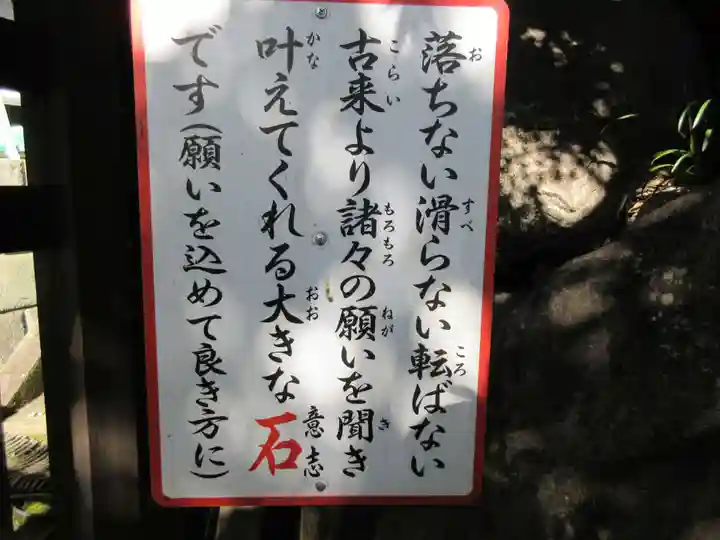 落ちない滑らない転ばない
古来より諸々の願いを聞き
叶えてくれる大きな石意志
です(願いを込めて良き方に)
お
すべ
ころ
こらい
もろもろ
ねが
き
かな
おお